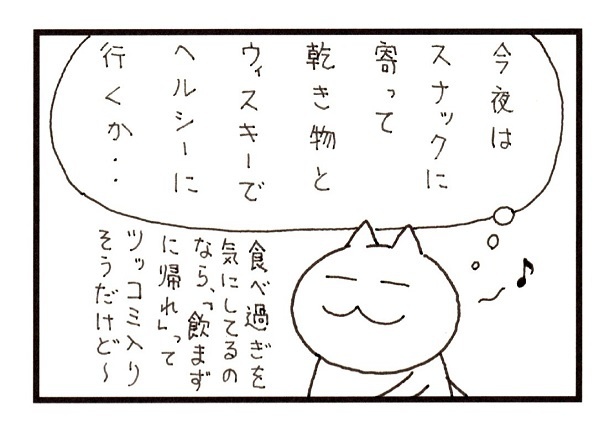 今夜は
スナックに
寄って
乾き物と
ウィスキーで
ヘルシーに
行くか・・
食べ過ぎを
気にしてるの
なら、「飲まず
に帰れ」って
ツッコミ入り
そうだけど〜